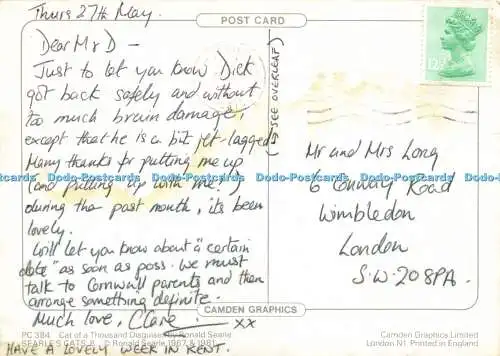 Thurs 27th May.
POST CARD
Dear M & D -
Just to let you know Dick
got back safely and without
too much brain damage,
except that he is a bit jet-lagged.
Many thanks for putting me up
(and putting up with me!)
during the past month, it's been
lovely.
Will let you know about a "certain
date" as soon as poss. We must
talk to Cornwall parents and then
arrange something definite.
Much love, Clare
xx
HAVE A LOVELY WEEK IN KENT.
(SEE OVERLEAF)
12½
Mr and Mrs Long
6 Conway Road
Wimbledon
London
S.W.20 8PA.
Dodo-Postcards Dodo-Postcards Dodo-Postcards Dodo-Postcards Dodo-Postcards
CAMDEN GRAPHICS
PC 384 Cat of a Thousand Disguises by Ronald Searle
SEARLES CATS © Ronald Searle 1967 & 1981
Camden Graphics Limited
London N1. Printed in England